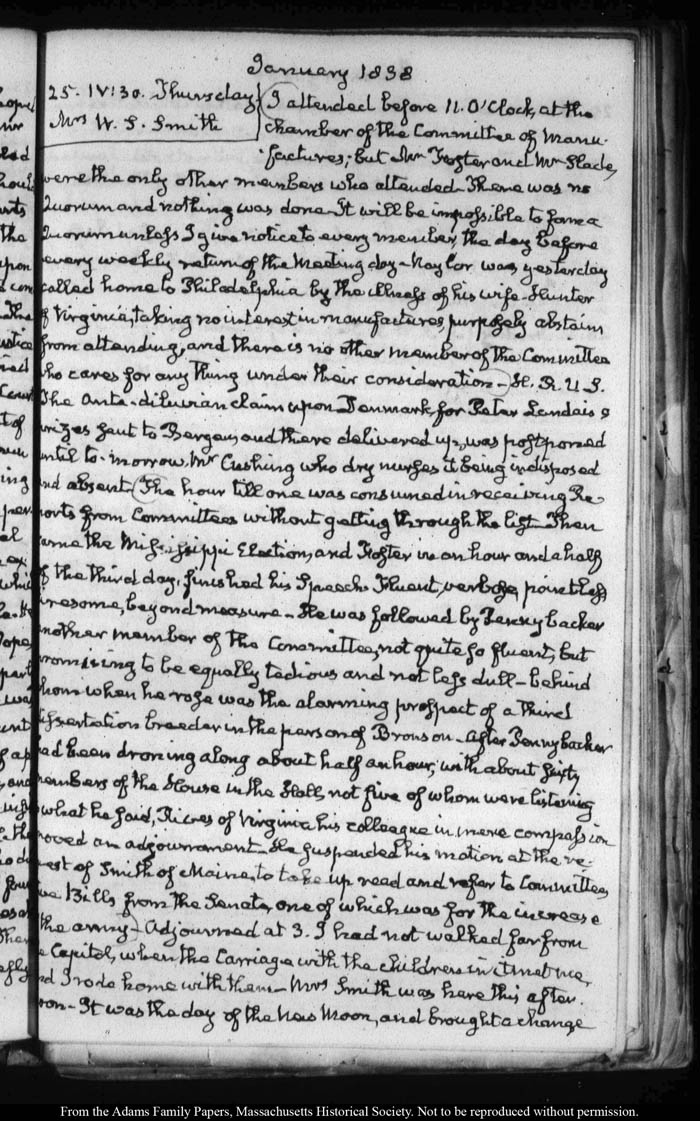 January 1838
25. IV:30. Thursday
Mrs W. S. Smith
I attended before 11. O'Clock, at the
chamber of the Committee of Manu-
factures; but Mr Foster and Mr Slade,
were the only other members who attended. There was no
Quorum and nothing was done. It will be impossible to form a
Quorum unless I give notice to every member, the day before
every weekly return of the Meeting day – Naylor was yesterday
called home to Philadelphia by the illness of his wife – Hunter
of Virginia, taking no interest in manufactures, purposely abstains
from attending, and there is no other member of the Committee
who cares for any thing under their consideration – H. R. U S.
The Ante-diluvian claim upon Denmark, for Peter Landais's
prizes sent to Bergen, and there delivered up, was postponed
until to-morrow. Mr Cushing who dry nurses it being indisposed
and absent. The hour till one was consumed in receiving Re-
ports from Committees without getting through the list. Then
came the Mississippi Election, and Foster in an hour and a half
of the third day, finished his Speech. Fluent, verbose, pointless,
tiresome, beyond measure – He was followed by Pennybacker
another member of the Committee, not quite so fluent, but
promising to be equally tedious and not less dull – behind
whom when he rose was the alarming prospect of a third
dissertation breeder in the person of Bronson – After Pennybacker
had been droning along about half an hour, with about sixty
members of the House in the Hall, not five of whom were listening
to what he said, Rives of Virginia his colleague in mere compassion
moved an adjournment. He suspended his motion at the re-
quest of Smith of Maine, to take up read and refer to Committees,
Bills from the Senate, one of which was for the increase
the army – Adjourned at 3. I had not walked far from
the Capitol, when the Carriage with the children in it met me,
and I rode home with them – Mrs Smith was here this after-
noon – It was the day of the New Moon, and brought a change
From the Adams Family Papers, Massachusetts Historical Society. Not to be reproduced without permission.